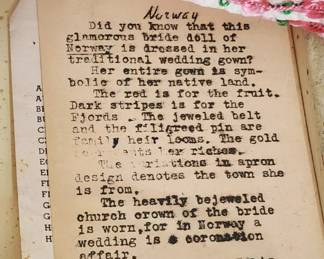 Norway
Did you know that this
glamorous bride doll of
Norway is dressed in her
traditional wedding gown?
Her entire gown is sym-
bolic of her native land.
The red is for the fruit.
Dark stripes is for the
Fjords. The jeweled belt
and the filigreed pin are
family heir looms. The gold
her riches.
The variations in apron
design denotes the town she
is from.
The heavily bejeweled
church crown of the bride
is worn,for in Norway a
wedding is a coronation
affair.